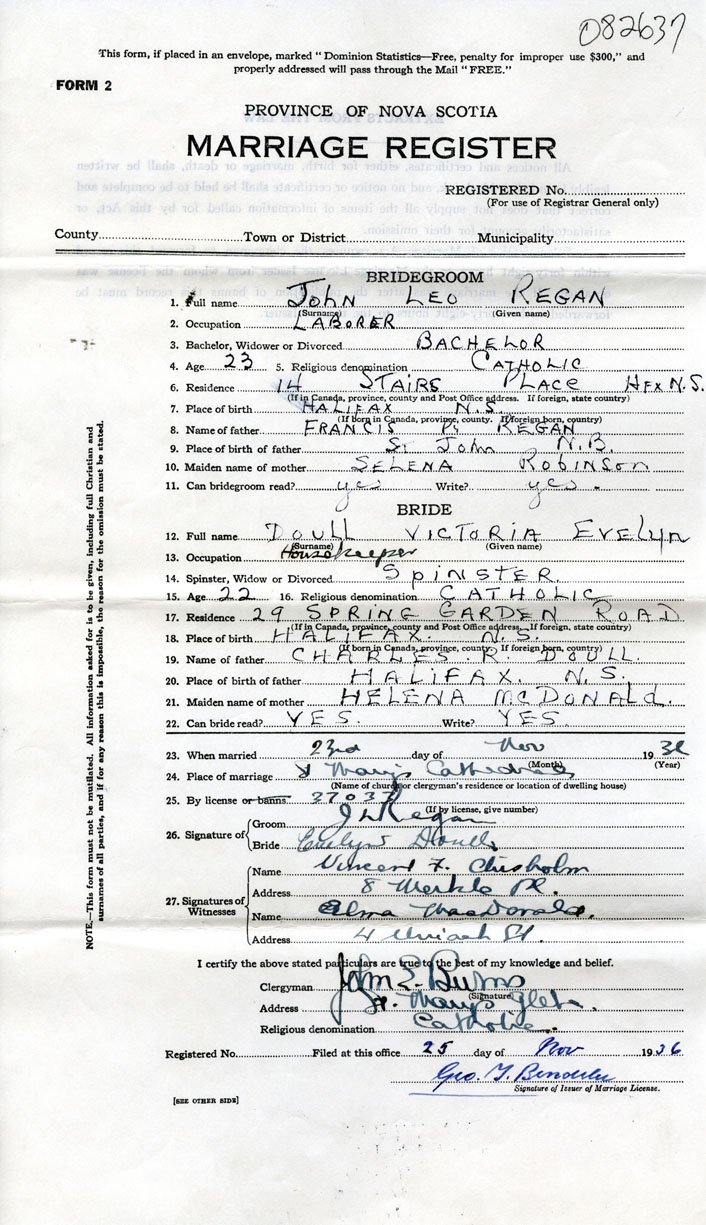 082637
This form, if placed in an envelope, marked "Dominion Statistics—Free, penalty for improper use $300," and
properly addressed will pass through the Mail "FREE."
FORM 2
PROVINCE OF NOVA SCOTIA
MARRIAGE REGISTER
REGISTERED No.
(For use of Registrar General only)
County Town or District Municipality
BRIDEGROOM
1. Full name John Leo Regan
(Surname) (Given name)
2. Occupation LABORER
3. Bachelor, Widower or Divorced BACHELOR
4. Age 23 5. Religious denomination CATHOLIC
6. Residence 14 STAIRS PLACE HFX N.S.
(If in Canada, province, county and Post Office address. If foreign, state country)
7. Place of birth HALIFAX N.S.
(If born in Canada, province, county. If foreign born, country)
8. Name of father FRANCIS P. REGAN
9. Place of birth of father St John N.B.
10. Maiden name of mother SELENA ROBINSON
11. Can bridegroom read? yes Write? yes.
BRIDE
12. Full name DOULL VICTORIA EVELYN
(Surname) (Given name)
13. Occupation Housekeeper
14. Spinster, Widow or Divorced SPINSTER
15. Age 22 16. Religious denomination CATHOLIC
17. Residence 29 SPRING GARDEN ROAD
(If in Canada, province, county and Post Office address. If foreign, state country)
18. Place of birth HALIFAX. N.S.
(If born in Canada, province, county. If foreign born, country)
19. Name of father CHARLES. R. DOULL.
20. Place of birth of father HALIFAX. N.S.
21. Maiden name of mother HELENA McDONALD.
22. Can bride read? YES. Write? YES.
23. When married 23rd day of Nov 1936
(Month) (Year)
24. Place of marriage St Mary's Cathedral
(Name of church or clergyman's residence or location of dwelling house)
25. By license or banns 37037
(If by license, give number)
26. Signature of
Groom J L Regan
Bride Evelyn Doull
27. Signatures of Witnesses
Name Vincent F. Chisholm
Address 8 Merkle Pl.
Name Alma MacDonald.
Address 4 St.
I certify the above stated particulars are true to the best of my knowledge and belief.
Clergyman John E. Burns
(Signature)
Address St. Mary's Glebe.
Religious denomination Catholic.
Registered No. Filed at this office 25 day of Nov 1936
Geo.
Signature of Issuer of Marriage License.
[SEE OTHER SIDE]
NOTE.—This form must not be mutilated. All information asked for is to be given, including full Christian and
surnames of all parties, and if for any reason this is impossible, the reason for the omission must be stated.